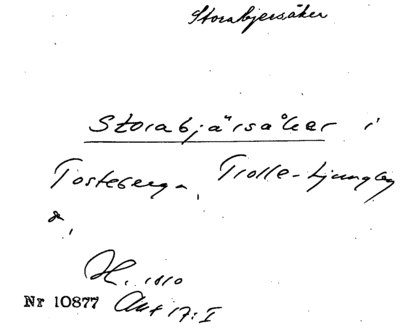 Storabjersåker
Storabjärsåker i
Tosteberga, Trolle-Ljungby
H. 1810
Nr 10877 Akt 17:I